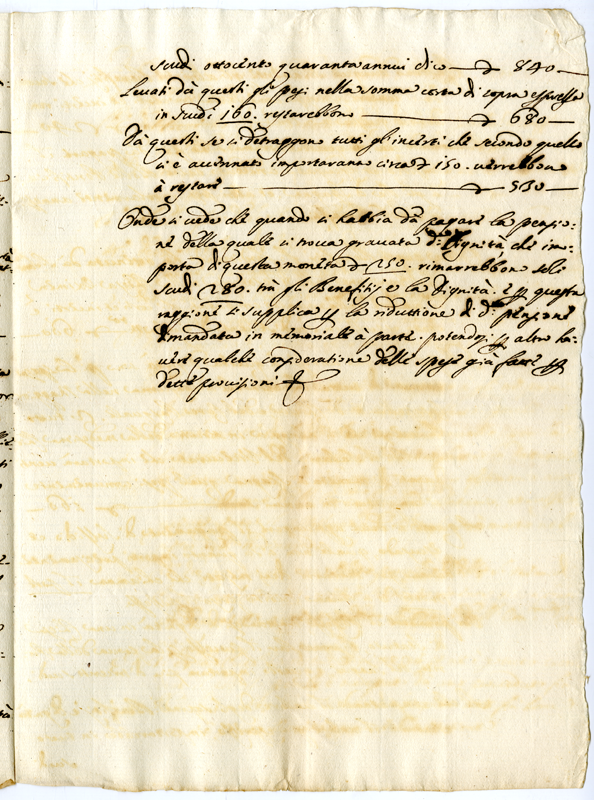 scudi ottocento quaranta annui dico — 840 —
Levati dà questi gli pesi nella somma certa di sopra espressa
in scudi 160. restarebbono — 680 —
Dà questi se si detraggono tutti gl'incerti che secondo quello
si è accennato importaranno circa 150. verrebbono
à restare — 530 —
Onde si vede che quando si habbia dà pagare la pensio:
ne della quale si trova gravata d.ª Dignità che im:
porta di questa moneta 250. rimarrebbono soli
scudi 280. trà gli Benefitij e la Dignità. E p questa
raggione si supplica p la riduttione di d.ª pensione
dimandata in memoriale à parte. potendosi p altro ha:
vere qualche consideratione delle spese già fatte p
dette provisioni